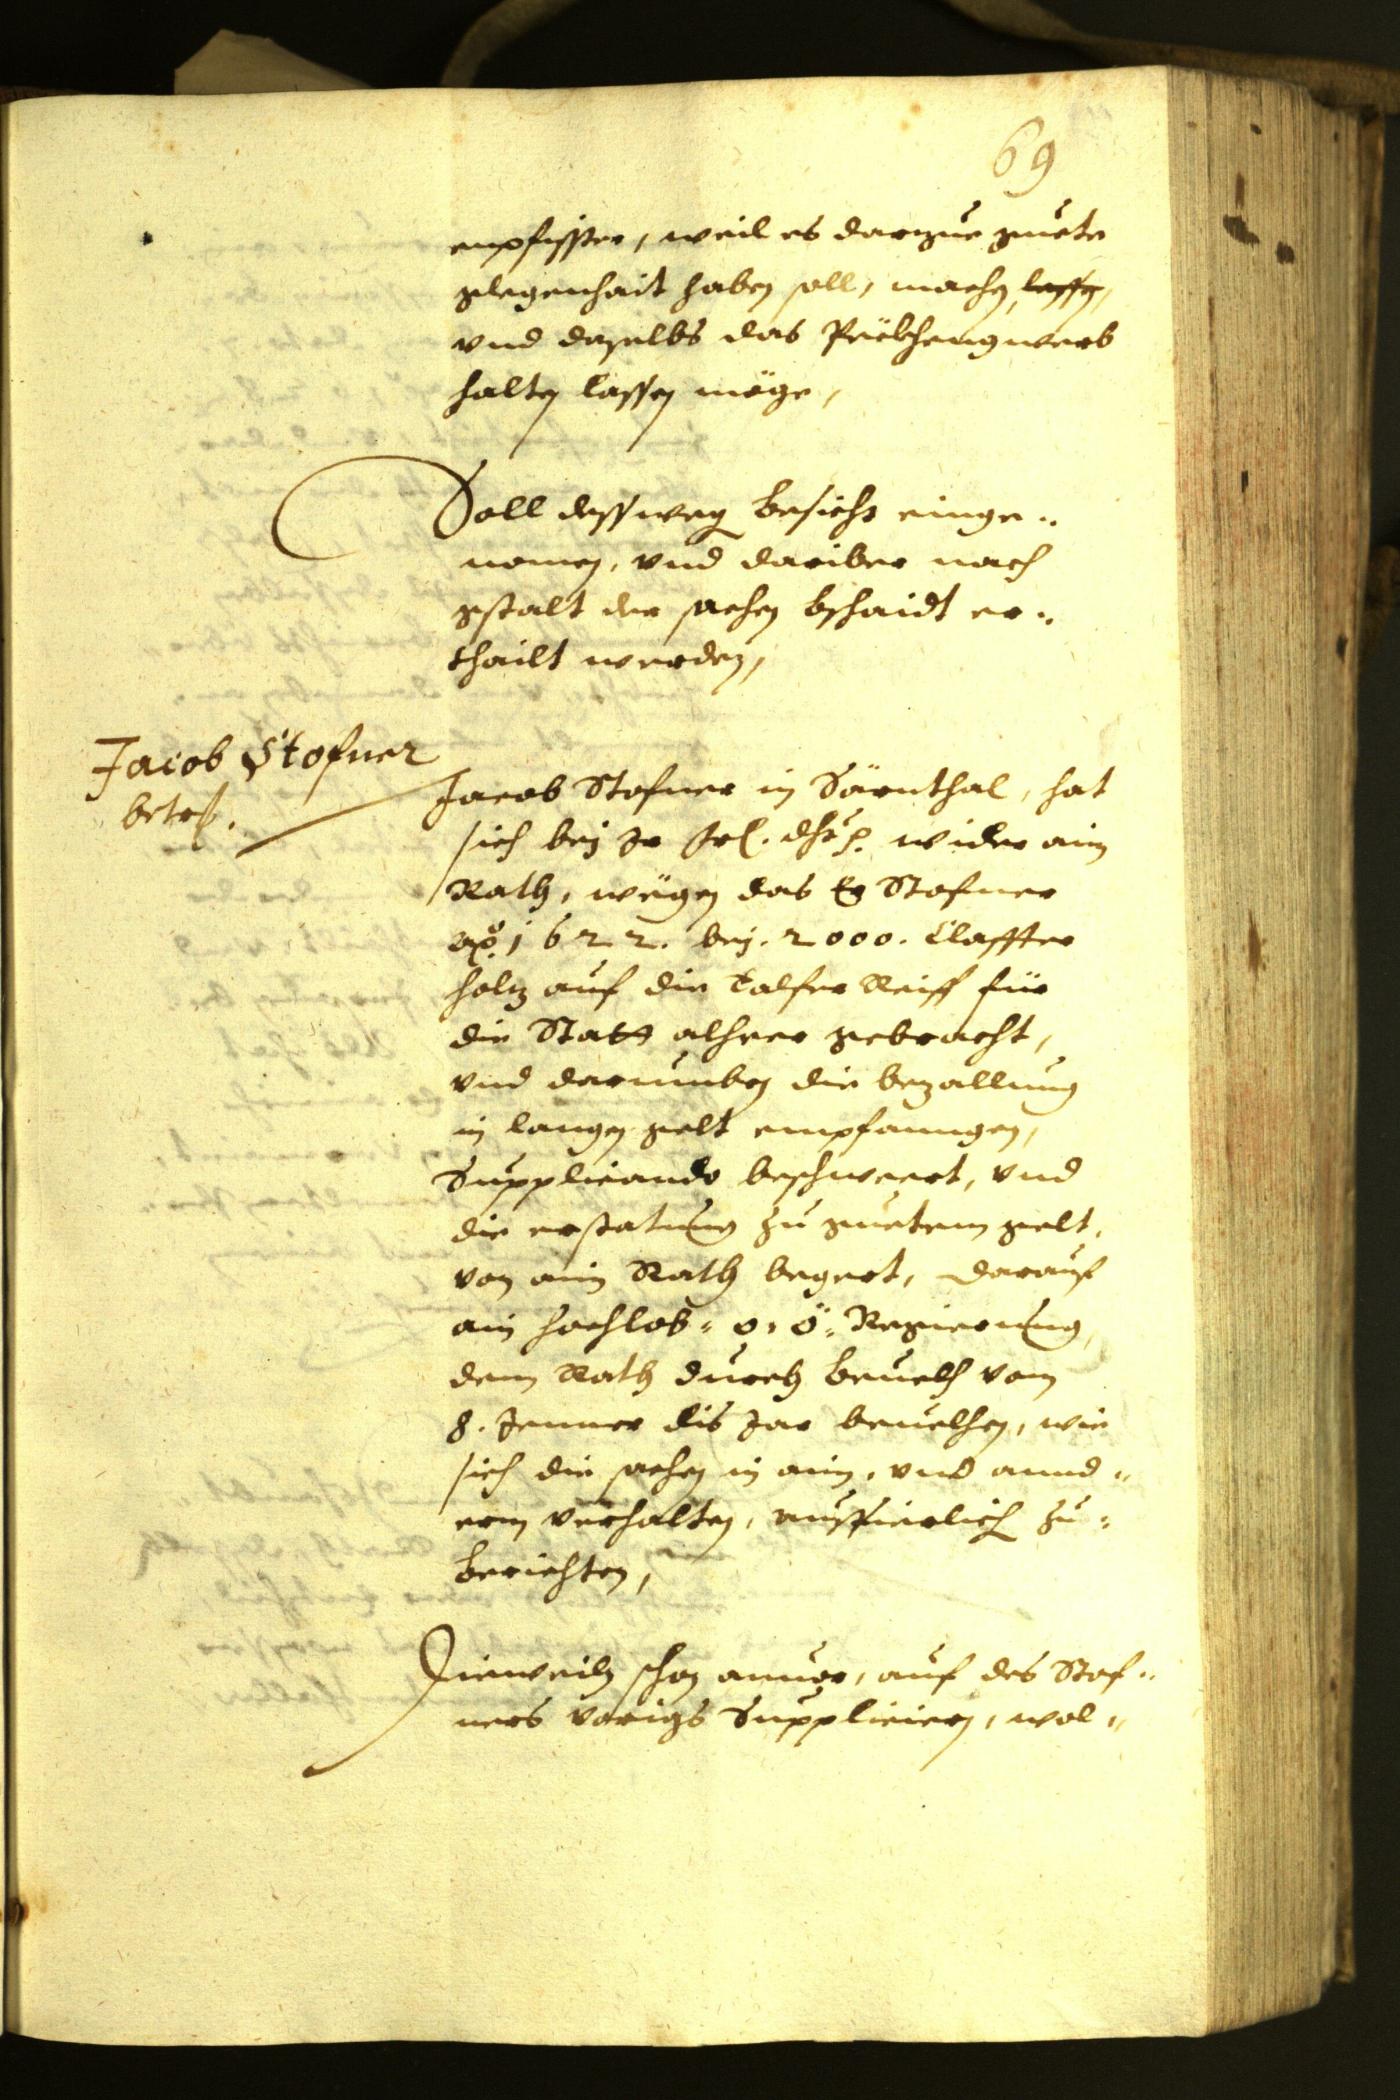 69
weil es darzue guete
glegenhait haben soll, machen, lassen,
vnd daselbs das
halten lassen möge,
Soll desswegen besicht einge„
nomen, vnd dariber nach
gstalt der sachen bschaidt er„
thailt werden,
Jacob Stofner
betref.
Jacob Stofner in Särnthal, hat
sich bey Jr wider ain
Rath, wegen das Er Stofner
Aō. 1622. bey. 2000. Claffter
holz auf die Talfer Reiff für
die Statt alheer gebracht,
vnd darumben die bezallung
in langen gelt empfanngen,
Supplicando beschweert, vnd
die erstatung zu guetem gelt,
von ain Rath begert, darauf
ain hochlob: o: ö: Regierung,
dem Rath durch beuelch vom
8. Jenner dis Jar beuelhen, wie
sich die sachen in ain, vnd annd„
erm verhalten, ausfierlich zu„
berichten,
Dieweiln schon anuor, auf des Stof„
ners vorigs Supplicien, wol„